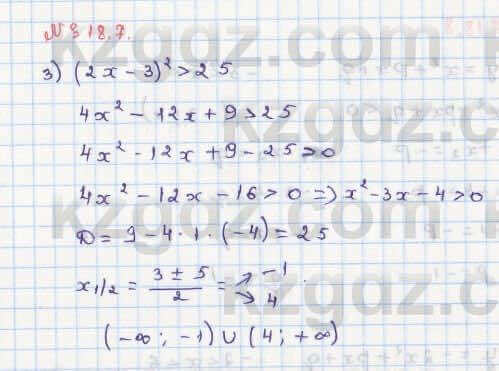 № 318.7.
3) (2x - 3)² > 25
4x² - 12x + 9 > 25
4x² - 12x + 9 - 25 > 0
4x² - 12x - 16 > 0 => x² - 3x - 4 > 0
D = 9 - 4 · 1 · (-4) = 25
x₁/₂ = (3 ± 5)/2 = ↗ -1 ↘ 4
(-∞ ; -1) ∪ (4 ; +∞)
kzgdz.com